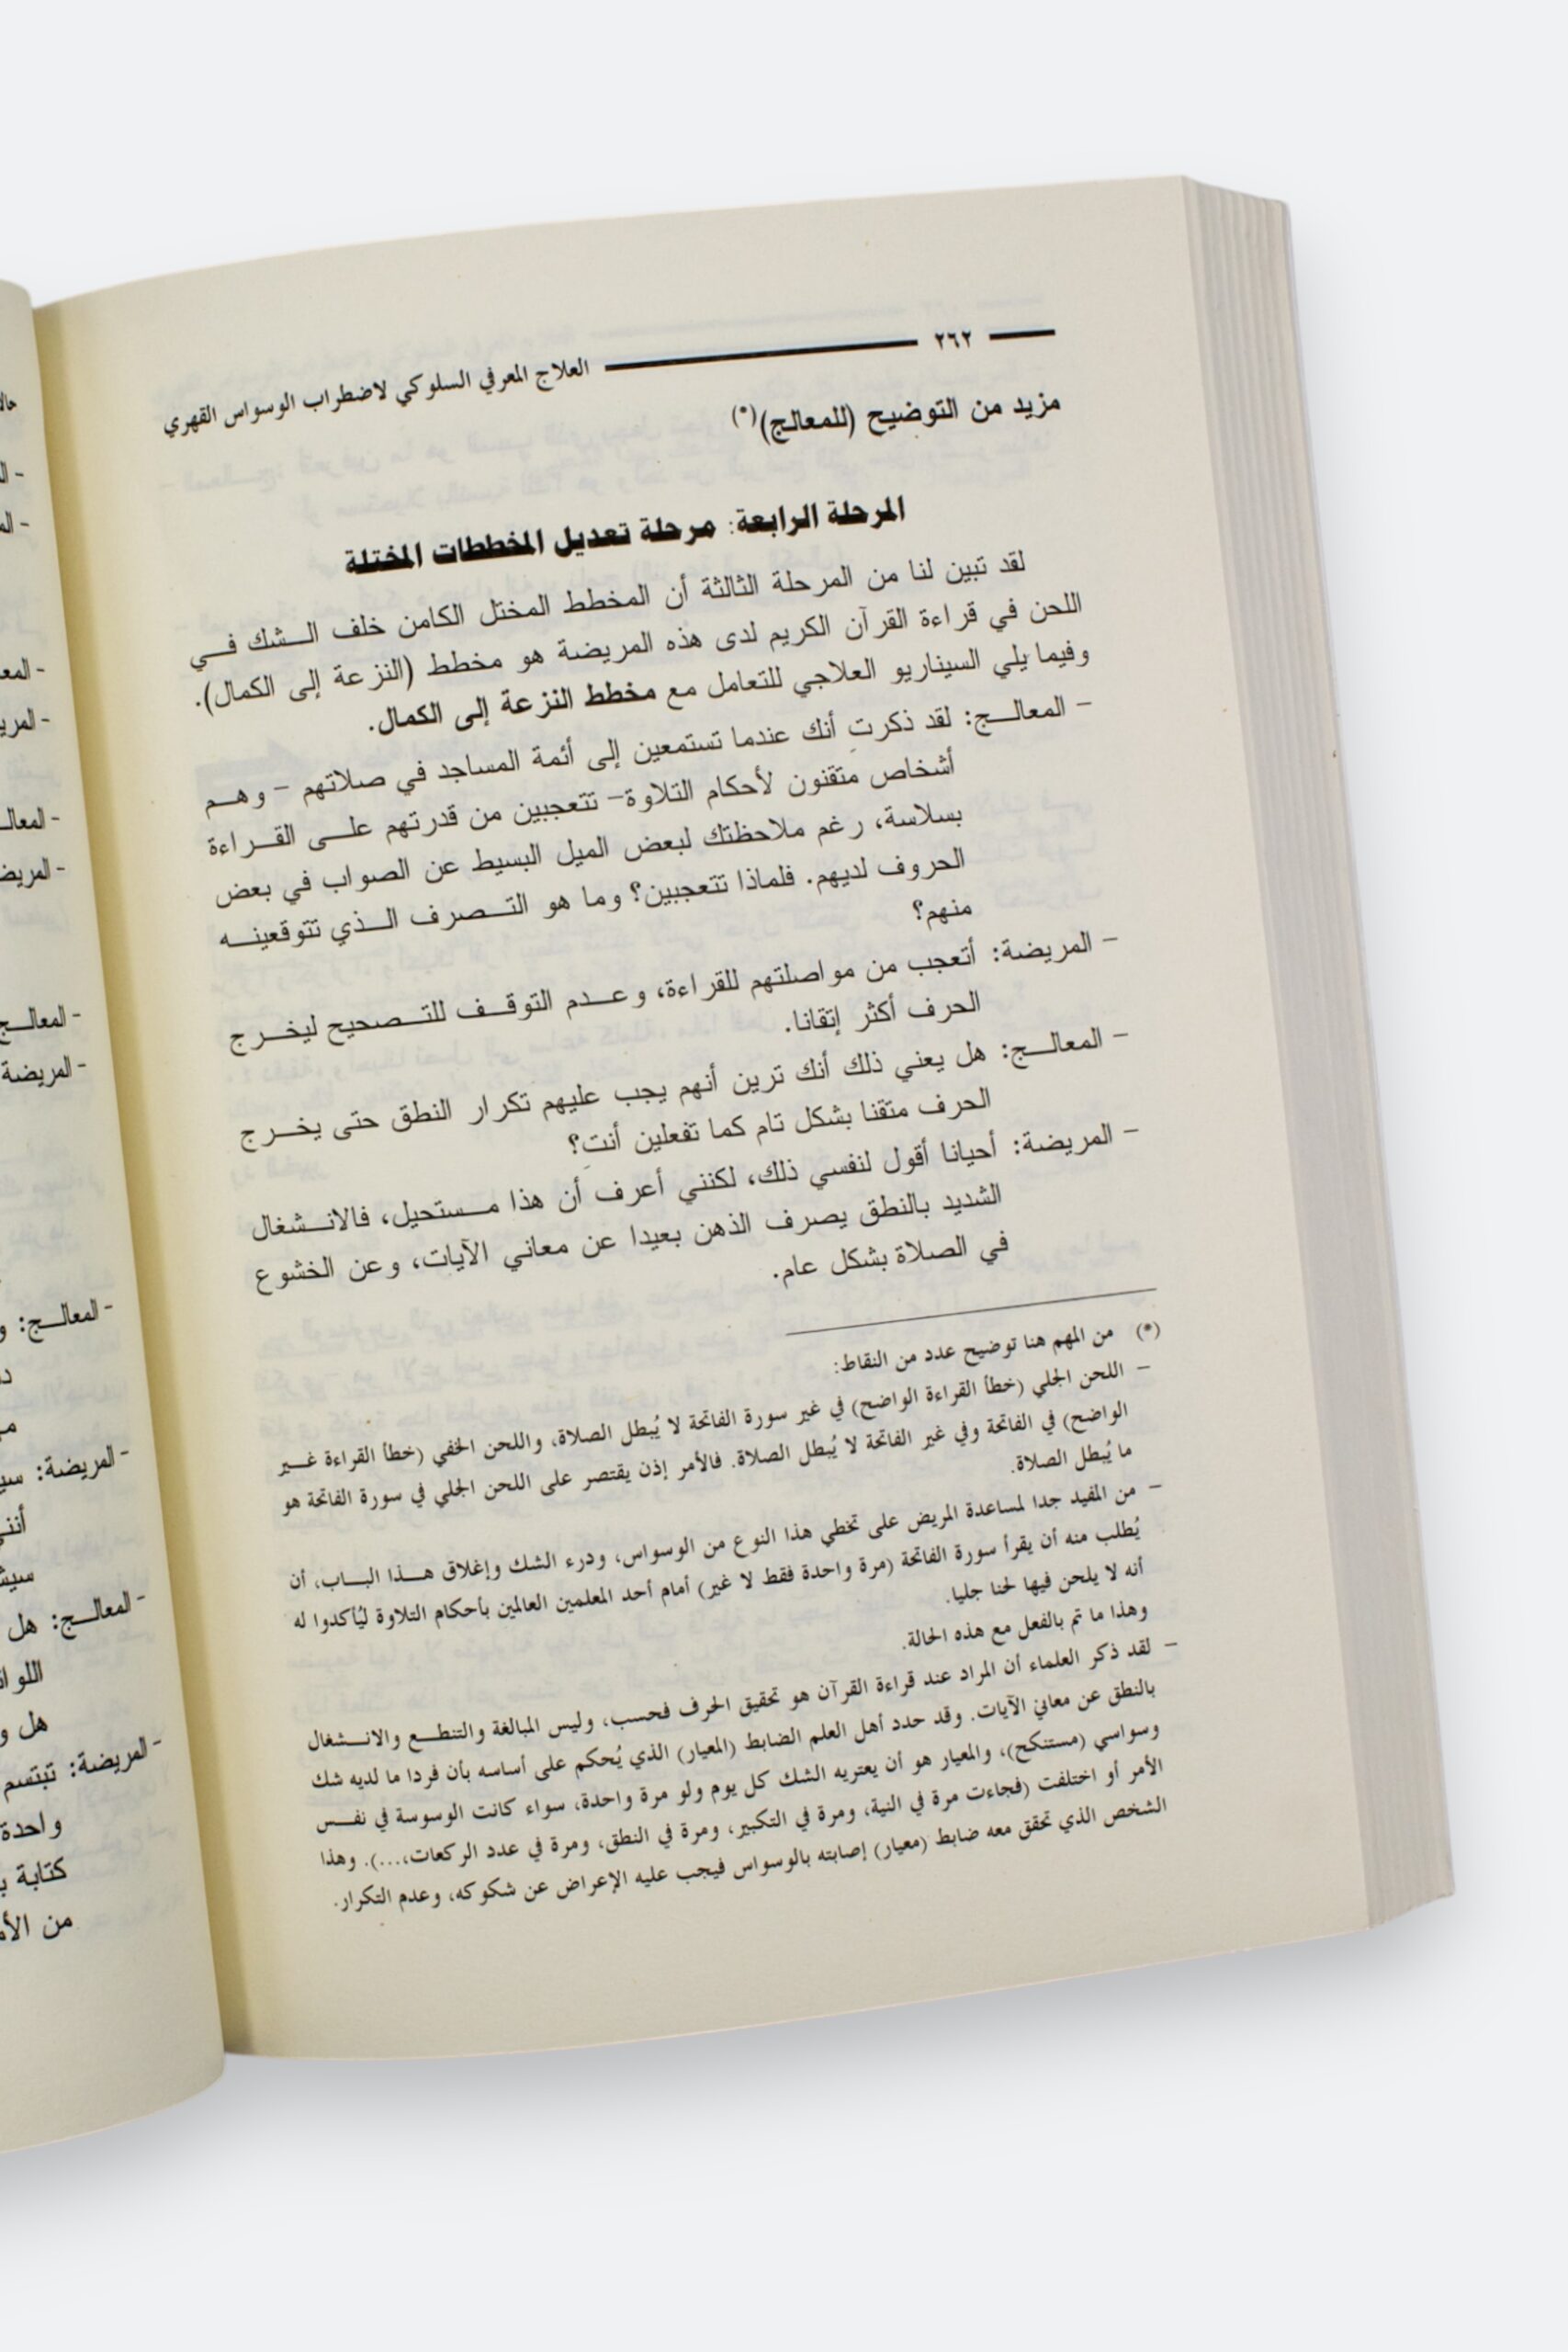 ٢٦٢
العلاج المعرفي السلوكي لاضطراب الوسواس القهري
مزيد من التوضيح (للمعالج)(*)
المرحلة الرابعة: مرحلة تعديل المخططات المختلة
لقد تبين لنا من المرحلة الثالثة أن المخطط المختل الكامن خلف الـــشك فـــي
اللحن في قراءة القرآن الكريم لدى هذه المريضة هو مخطط (النزعة إلى الكمال).
وفيما يلي السيناريو العلاجي للتعامل مع مخطط النزعة إلى الكمال.
– المعالـــج: لقد ذكرتِ أنك عندما تستمعين إلى أئمة المساجد في صلاتهم – وهـــم
أشخاص متقنون لأحكام التلاوة– تتعجبين من قدرتهم علـــى القـــراءة
بسلاسة، رغم ملاحظتك لبعض الميل البسيط عن الصواب في بعض
الحروف لديهم. فلماذا تتعجبين؟ وما هو التـــصرف الـــذي تتوقعينـــه
منهم؟
– المريضة: أتعجب من مواصلتهم للقراءة، وعـــدم التوقـــف للتـــصحيح ليخـــرج
الحرف أكثر إتقانا.
– المعالـــج: هل يعني ذلك أنك ترين أنهم يجب عليهم تكرار النطق حتى يخـــرج
الحرف متقنا بشكل تام كما تفعلين أنتِ؟
– المريضة: أحيانا أقول لنفسي ذلك، لكنني أعرف أن هذا مـــستحيل، فالانـــشغال
الشديد بالنطق يصرف الذهن بعيدا عن معاني الآيات، وعن الخشوع
في الصلاة بشكل عام.
(*) من المهم هنا توضيح عدد من النقاط:
– اللحن الجلي (خطأ القراءة الواضح) في غير سورة الفاتحة لا يُبطل الصلاة، واللحن الخفي (خطأ القراءة غـــير
الواضح) في الفاتحة وفي غير الفاتحة لا يُبطل الصلاة. فالأمر إذن يقتصر على اللحن الجلي في سورة الفاتحة هو
ما يُبطل الصلاة.
– من المفيد جدا لمساعدة المريض على تخطي هذا النوع من الوسواس، ودرء الشك وإغلاق هـــذا البـــاب، أن
يُطلب منه أن يقرأ سورة الفاتحة (مرة واحدة فقط لا غير) أمام أحد المعلمين العالمين بأحكام التلاوة ليُأكدوا له
أنه لا يلحن فيها لحنا جليا.
وهذا ما تم بالفعل مع هذه الحالة.
– لقد ذكر العلماء أن المراد عند قراءة القرآن هو تحقيق الحرف فحسب، وليس المبالغة والتنطـــع والانـــشغال
بالنطق عن معاني الآيات. وقد حدد أهل العلم الضابط (المعيار) الذي يُحكم على أساسه بأن فردا ما لديه شك
وسواسي (مستنكح)، والمعيار هو أن يعتريه الشك كل يوم ولو مرة واحدة، سواء كانت الوسوسة في نفـــس
الأمر أو اختلفت (فجاءت مرة في النية، ومرة في التكبير، ومرة في النطق، ومرة في عدد الركعات،...). وهذا
الشخص الذي تحقق معه ضابط (معيار) إصابته بالوسواس فيجب عليه الإعراض عن شكوكه، وعدم التكرار.
– المعالـــج
– المريضة
– المعالـــج:
– المريضة:
– المعالـــج: هل
هل
– المريضة: تبتسم
واحدة
كتابة
من